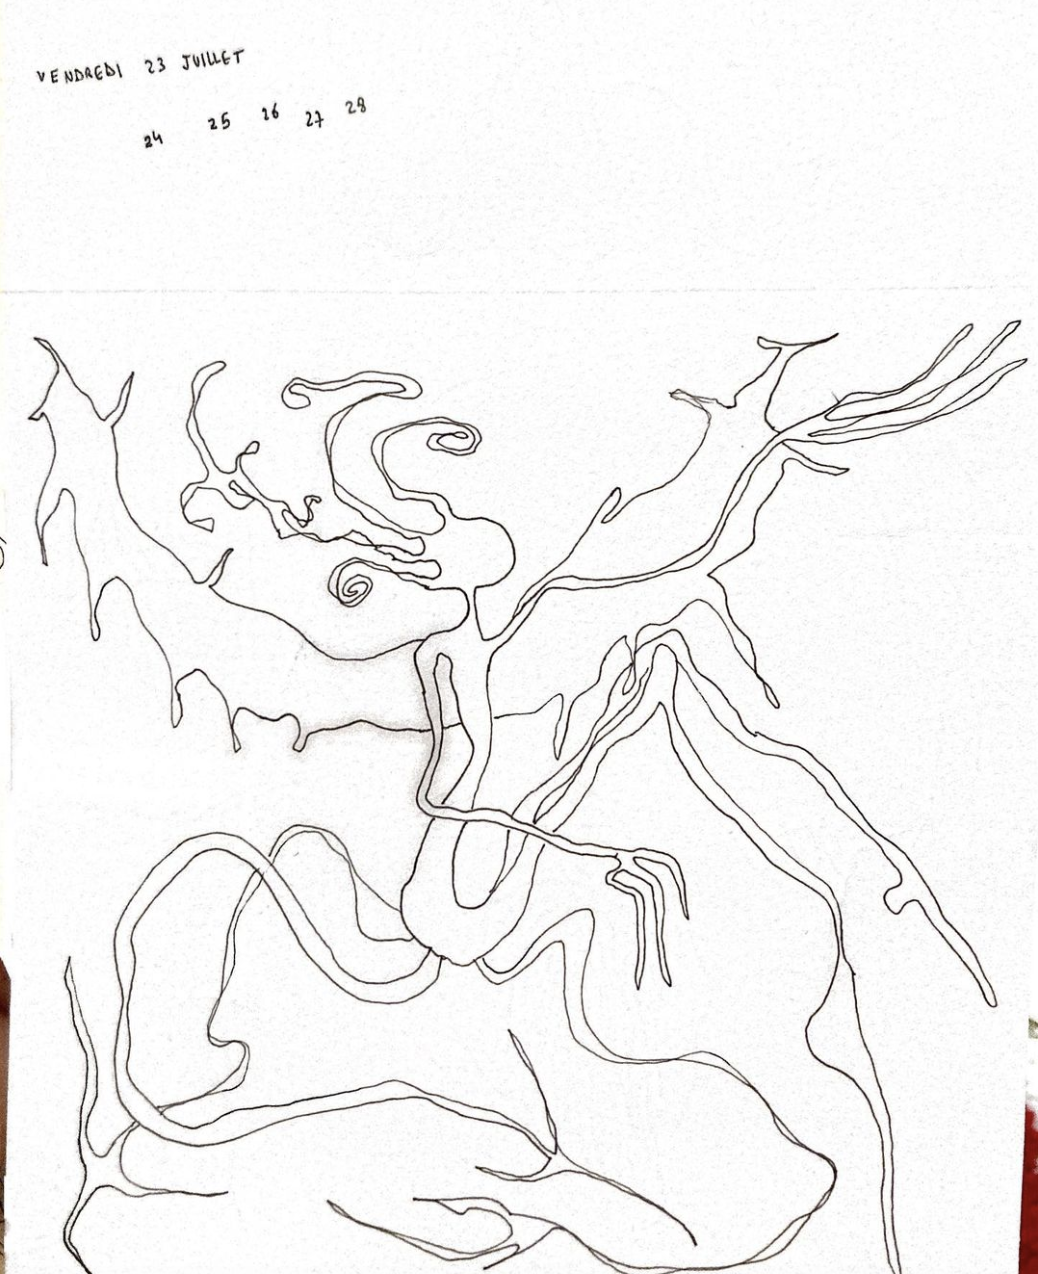 VENDREDI 23 JUILLET
24 25 26 27 28